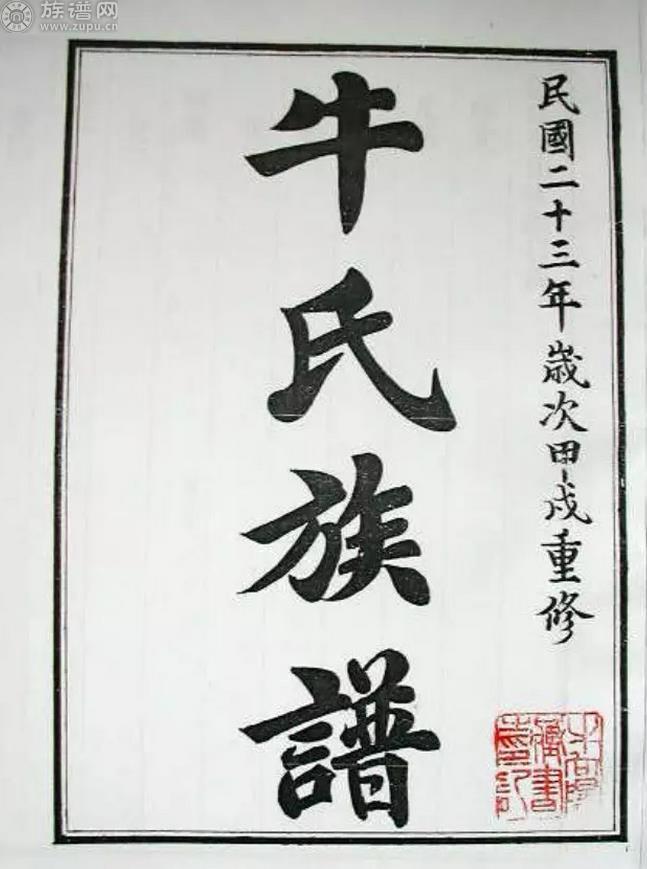 族谱网
www.zupu.cn
民國二十三年歲次甲戌重修
牛氏族譜